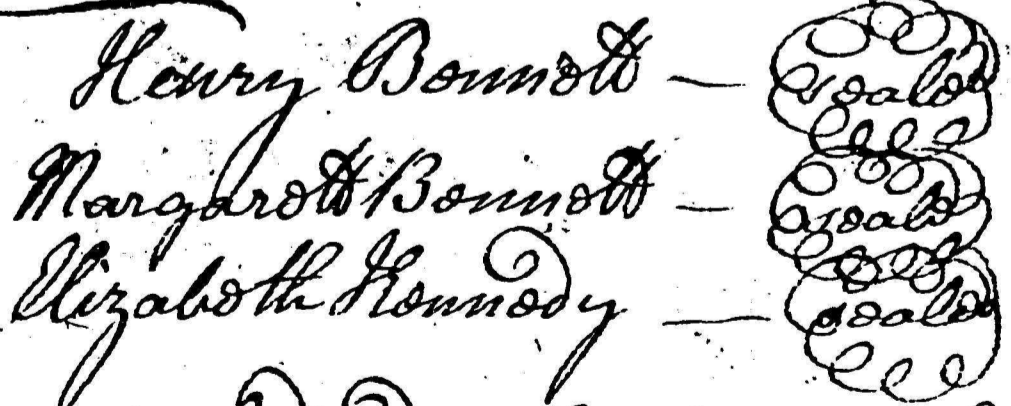 Henry Bennett — seald
Margarett Bennett — seald
Elizabeth Kennedy — seald